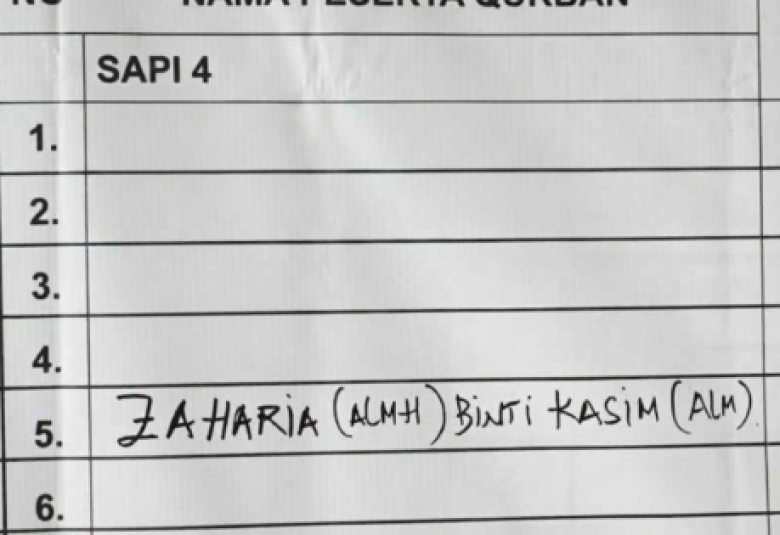 NO NAMA PESERTA QURBAN
SAPI 4
1.
2.
3.
4.
5. ZAHARIA (ALMH) BINTI KASIM (ALM)
6.